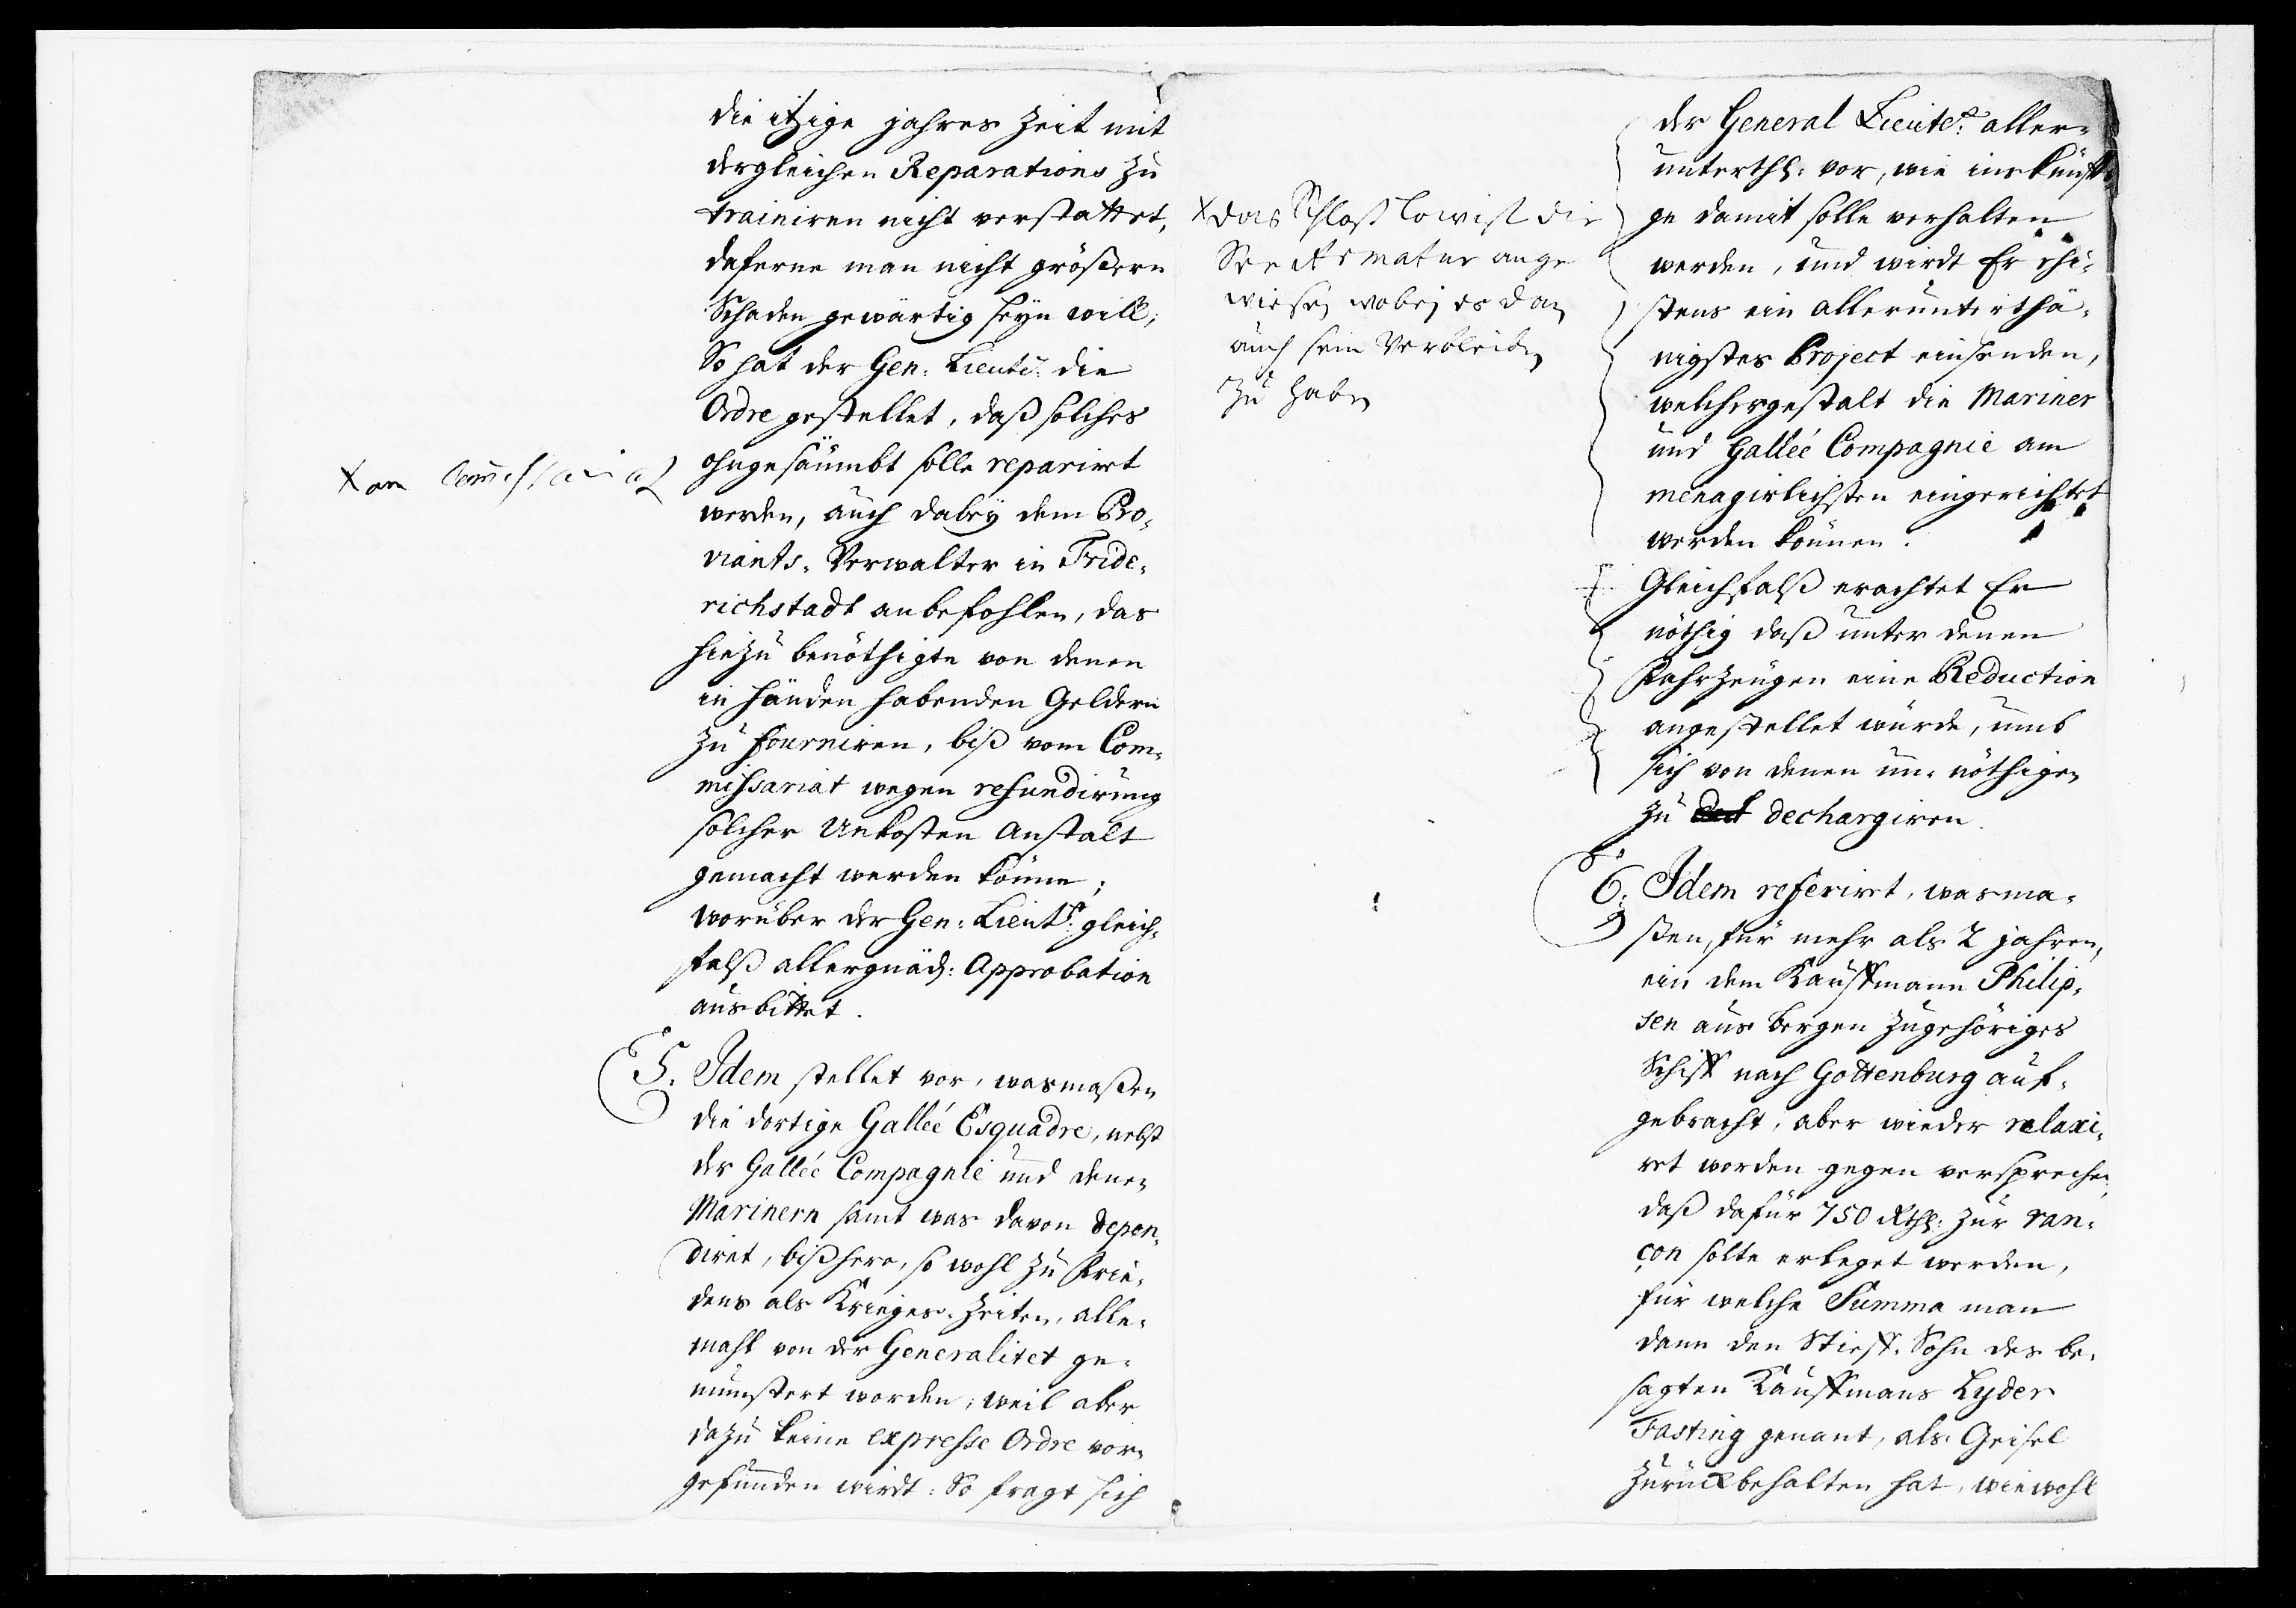 die itzige jahres Zeit mit
dergleichen Reparations zu
trainiren nicht verstattet,
daferne man nicht größern
Schaden gewärtig seyn will;
So hat der Gen: Lieutn: die
Ordre gestellet, daß solches
ohngesäumbt solle reparirt
werden, auch dabeÿ dem Pro-
viants-Verwalter in Fride-
richstadt anbefohlen, das
hiezu benöthigte von denen
in händen habenden Geldern
zu fourniren, biß vom Com-
missariat wegen refundirung
solcher Unkosten Anstalt
gemacht werden könne;
worüber der Gen: Lieutn: gleich-
falß allergnäd: Approbation
ausbittet.
5. Idem stellet vor, wasmaßen
die dortige Galleé Esquadre, nebst
der Galleé Compagnie und denen
Marinern samt was davon depen-
diret, bißhero, so wohl zu Frie-
dens als Krieges-Zeiten, alle-
mahl von der Generalitet ge-
munstert worden; weil aber
dazu keine expresse Ordre vor-
gefunden wirdt: So fragt sich
x am Commissariat
x das Schloß
See Armatur ange
wiesen wobej es dan
auch sein Verbleiben
zu haben
der General Lieutn: aller-
unterthl: vor, wie inskünfti-
ge damit solle verhalten
werden, und wirdt Er ehi-
stens ein allerunterthä-
nigstes Project einsenden,
welchergestalt die Mariner
und Galleé Compagnie am
menagirlichsten eingerichtet
werden können.
Gleichfalß erachtet Er
nöthig daß unter denen
Fahrzeugen eine Reduction
angestellet würde, umb
sich von denen un-nöthigen
zu dechargiren.
6. Idem referirt, wasma-
ßen, für mehr als 2 jahren,
ein dem Kauffmann Philip-
sen aus Bergen zugehöriges
Schiff nach Gottenburg auf-
gebracht, aber wieder relaxi-
ret worden gegen versprechen,
daß dafür 750 Rthl: zur ran-
çon solte erleget werden,
für welche Summa man
dann den Stieff-Sohn des be-
sagten Kauffmans Lyder
Fasting genant, als Geisel
zurückbehalten hat, wiewohl